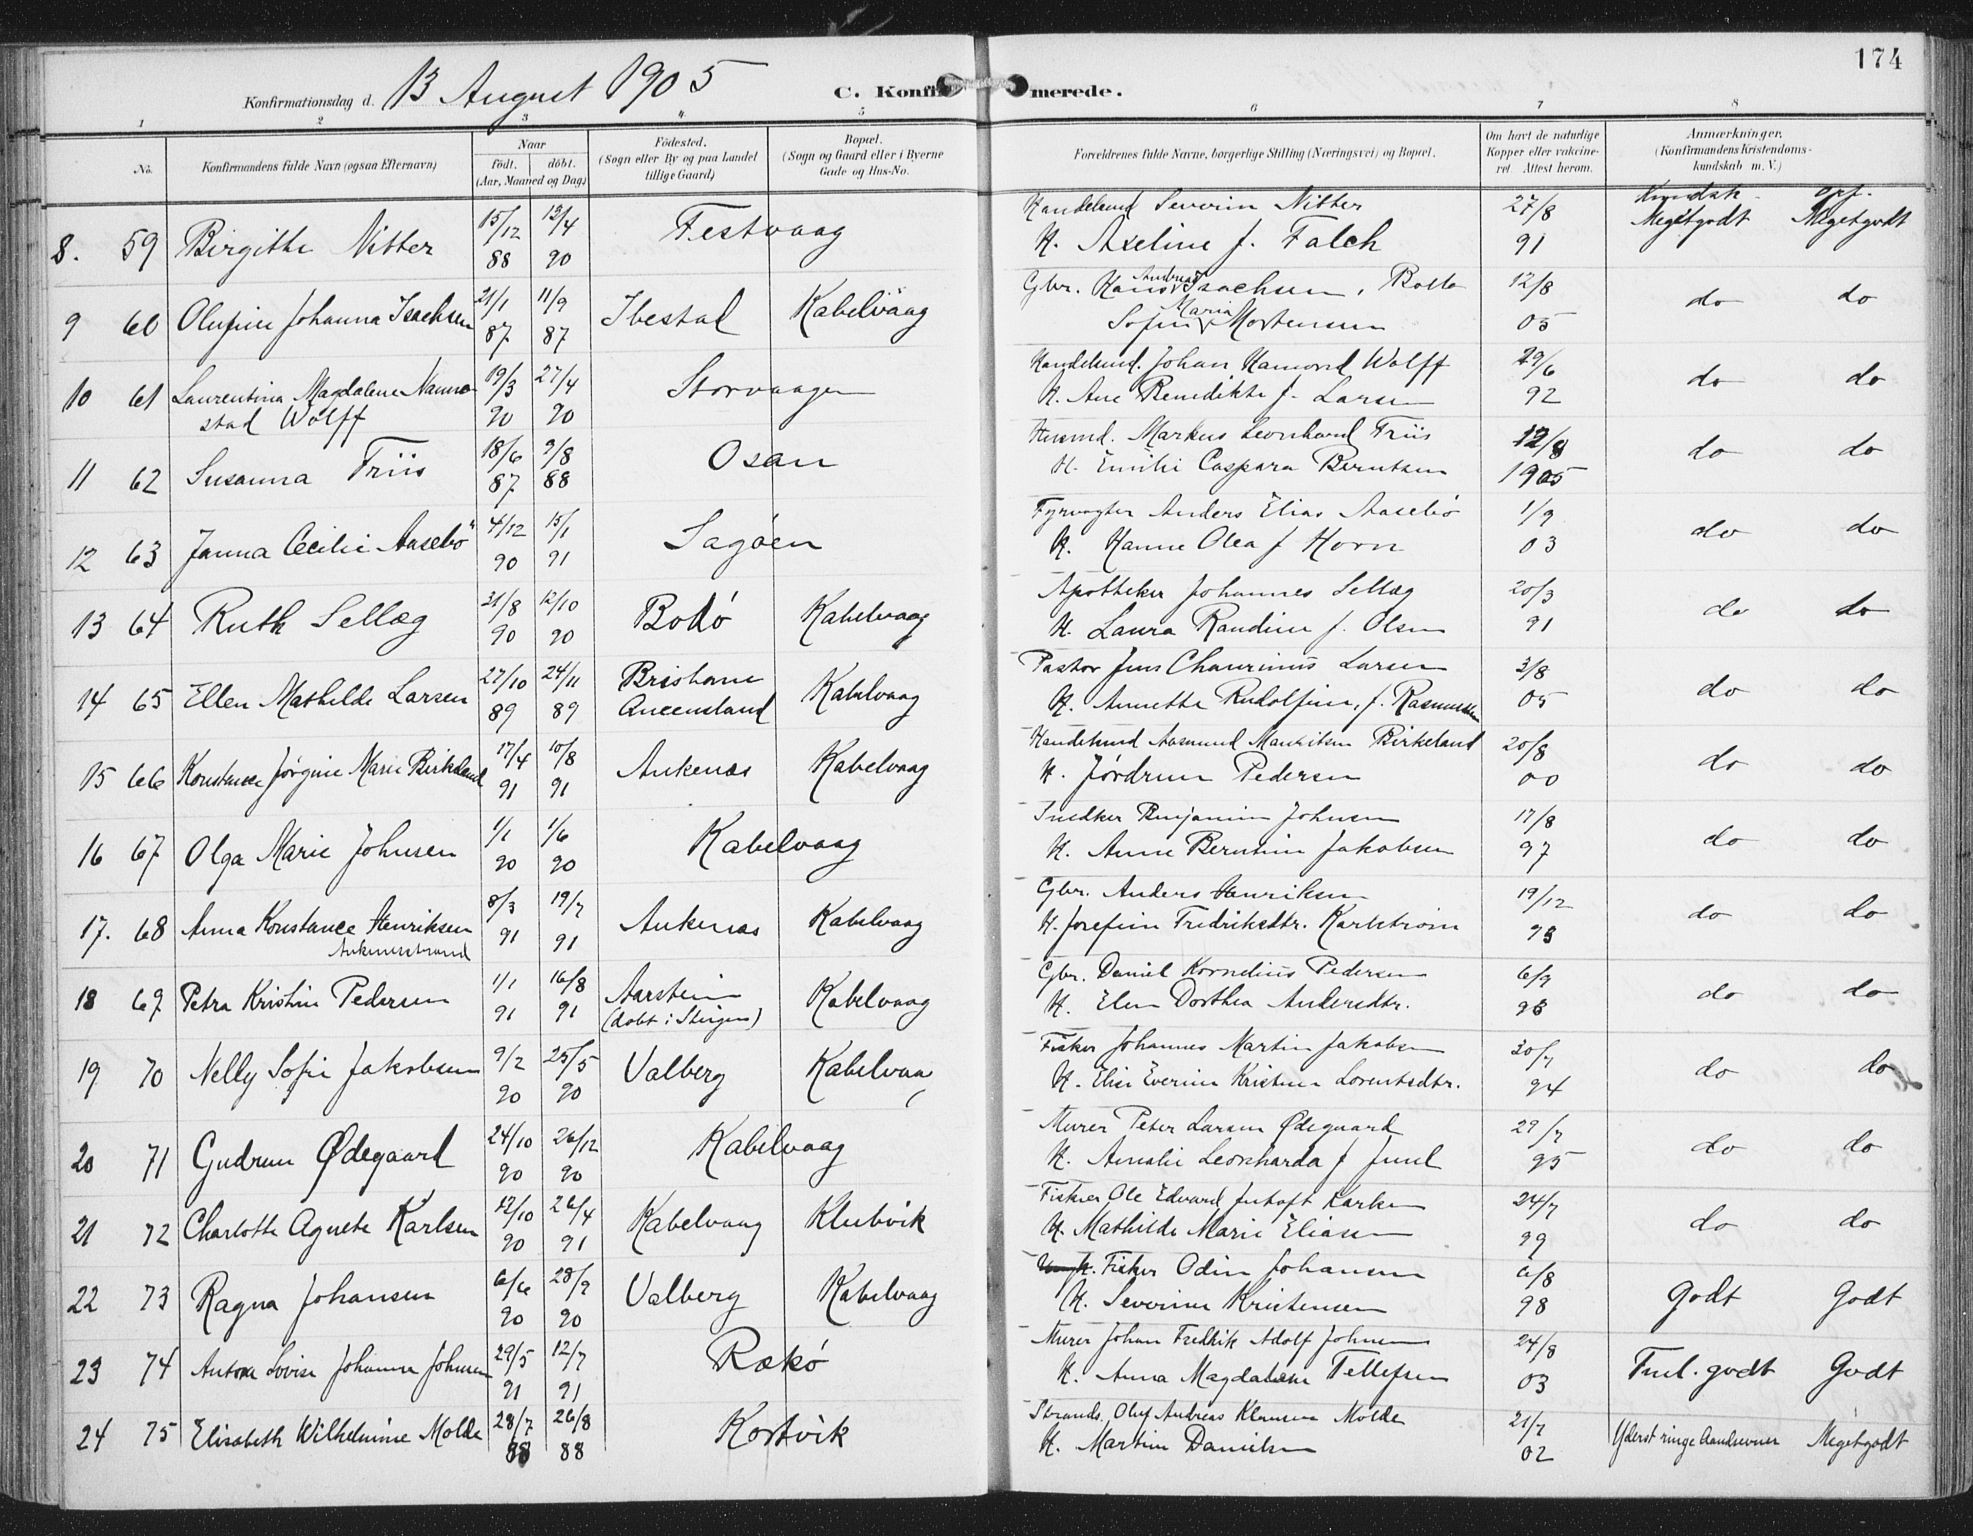 174
Konfirmationsdag d. 13 August 1905
C. Konfirmerede.
1 2 3 4 5 6 7 8
No.
Konfirmandens fulde Navn (ogsaa Efternavn)
Naar
födt. döbt.
(Aar, Maaned og Dag.)
Födested.
(Sogn eller By og paa Landet
tillige Gaard)
Bopæl.
(Sogn og Gaard eller i Byerne
Gade og Hus-No.
Forældrenes fulde Navne, borgerlige Stilling (Næringsvei) og Bopæl.
Om havt de naturlige
Kopper eller vakcine-
ret. Attest herom.
Anmærkninger.
(Konfirmandens Kristendoms-
kundskab m. V.)
Kundsk. opf.
8. 59 Birgithe Nitter 15/12 88 13/4 90 Festvaag
Handelsmd Severin Nitter 27/8 Megetgodt Megetgodt
H. Axeline f. Falch 91
9 60 Olufine Johanna Isachsen 21/1 87 11/9 87 Ibestad Kabelvaag
Gbr. Hans Andreas Isachsen, 12/8 do do
Sofie Maria Mortensen 05
10 61 Laurentina Magdalena Nanne-
stad Wolff 19/3 90 27/4 90 Storvaagen
Handelsmd. Johan Hamond Wolff 29/6 do do
H. Ane Benedikte f. Larsen 92
11 62 Susanna Friis 18/6 87 9/8 88 Osan
Husmd. Markus Leonhard Friis 12/8 do do
H. Emilie Caspara Berntsen 1905
12 63 Janna Cecilie Aasebö 4/12 90 15/1 91 Sagöen
Fyrvogter Anders Elias Aasebö 1/9 do do
H. Hanne Olea f Horn 03
13 64 Ruth Sellæg 31/8 90 12/10 90 Bodö Kabelvaag
Apotheker Johannes Sellæg 20/3 do do
H. Laura Randine f. Olsen 91
14 65 Ellen Mathilde Larsen 27/10 89 24/11 89 Brisbane
Queensland Kabelvaag
Pastor Jens Laurinius Larsen 3/8 do do
H. Annette Rudolfine, f. Rasmussen 05
15 66 Konstance Jørgine Marie Birkeland 17/4 91 10/8 91 Ankenæs Kabelvaag
Handelsmd Aasmund Mauritsen Birkeland 20/8 do do
H. Jørdrun Pedersen 00
16 67 Olga Marie Johnsen 1/1 90 1/6 90 Kabelvaag
Snedker Benjamin Johnsen 17/8 do do
H. Anne Berntine Jakobsen 97
17. 68 Anna Konstance Henriksen
Ankenesstrand 8/3 91 19/7 91 Ankenæs Kabelvaag
Gbr. Anders Henriksen 19/12 do do
H. Josefine Fredriksdtr. Karlstrøm 93
18 69 Petra Kristine Pedersen 1/1 91 16/8 91 Aarstein
(døbt i Steigen) Kabelvaag
Gbr. Daniel Kornelius Pedersen 6/9 do do
H. Elen Dorthea Andersdtr. 98
19 70 Nelly Sofie Jakobsen 9/2 90 25/5 90 Valberg Kabelvaa
Fisker Johannes Martin Jakobsen 30/7 do do
H. Elise Everine Kristine Lorentsdtr. 94
20 71 Gudrun Ødegaard 24/10 90 26/12 90 Kabelvaag
Murer Peter Larsen Ødegaard 29/7 do do
H. Amalie Leonharda f Juul 95
21 72 Charlotte Agnete Karlsen 12/10 90 26/4 91 Kabelvaag Klubvik
Fisker Ole Edvard Karlsen 24/7 do do
H. Mathilde Marie Eliasen 99
22 73 Ragna Johansen 6/6 90 28/9 90 Valberg Kabelvaag
Fisker Odin Johansen 6/8 Godt Godt
H. Severine Kristensen 98
23 74 Antona Lovise Johanne Johnsen 29/5 91 12/7 91 Rækö
Murer Johan Fredrik Adolf Johnsen 24/8 Tml. godt Godt
H. Anna Magdalene Tellefsen 03
24 75 Elisabeth Wilhelmine Molde 28/7 88 26/8 88 Kortvik
Strands. Oluf Andreas Klausen Molde 21/7 Yderst ringe Aandsevner Megetgodt
H. Martine Danielsen 02